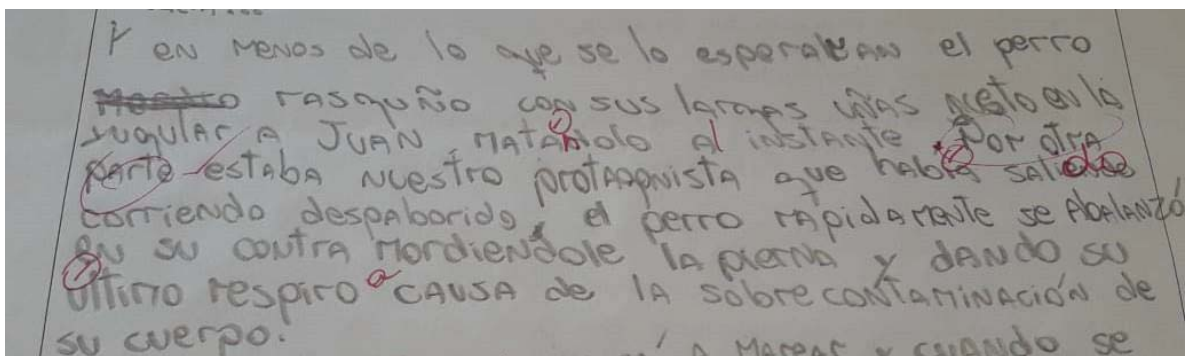 Y en menos de lo que se lo esperaban el perro
rasguño con sus largas uñas justo en la
yugular a Juan, matandolo al instante. Por otra
parte estaba nuestro protagonista que habia salido
corriendo despaborido, el perro rapidamente se abalanzó
en su contra mordiendole la pierna y dando su
último respiro a causa de la sobrecontaminación de
su cuerpo.
a marear y cuando se